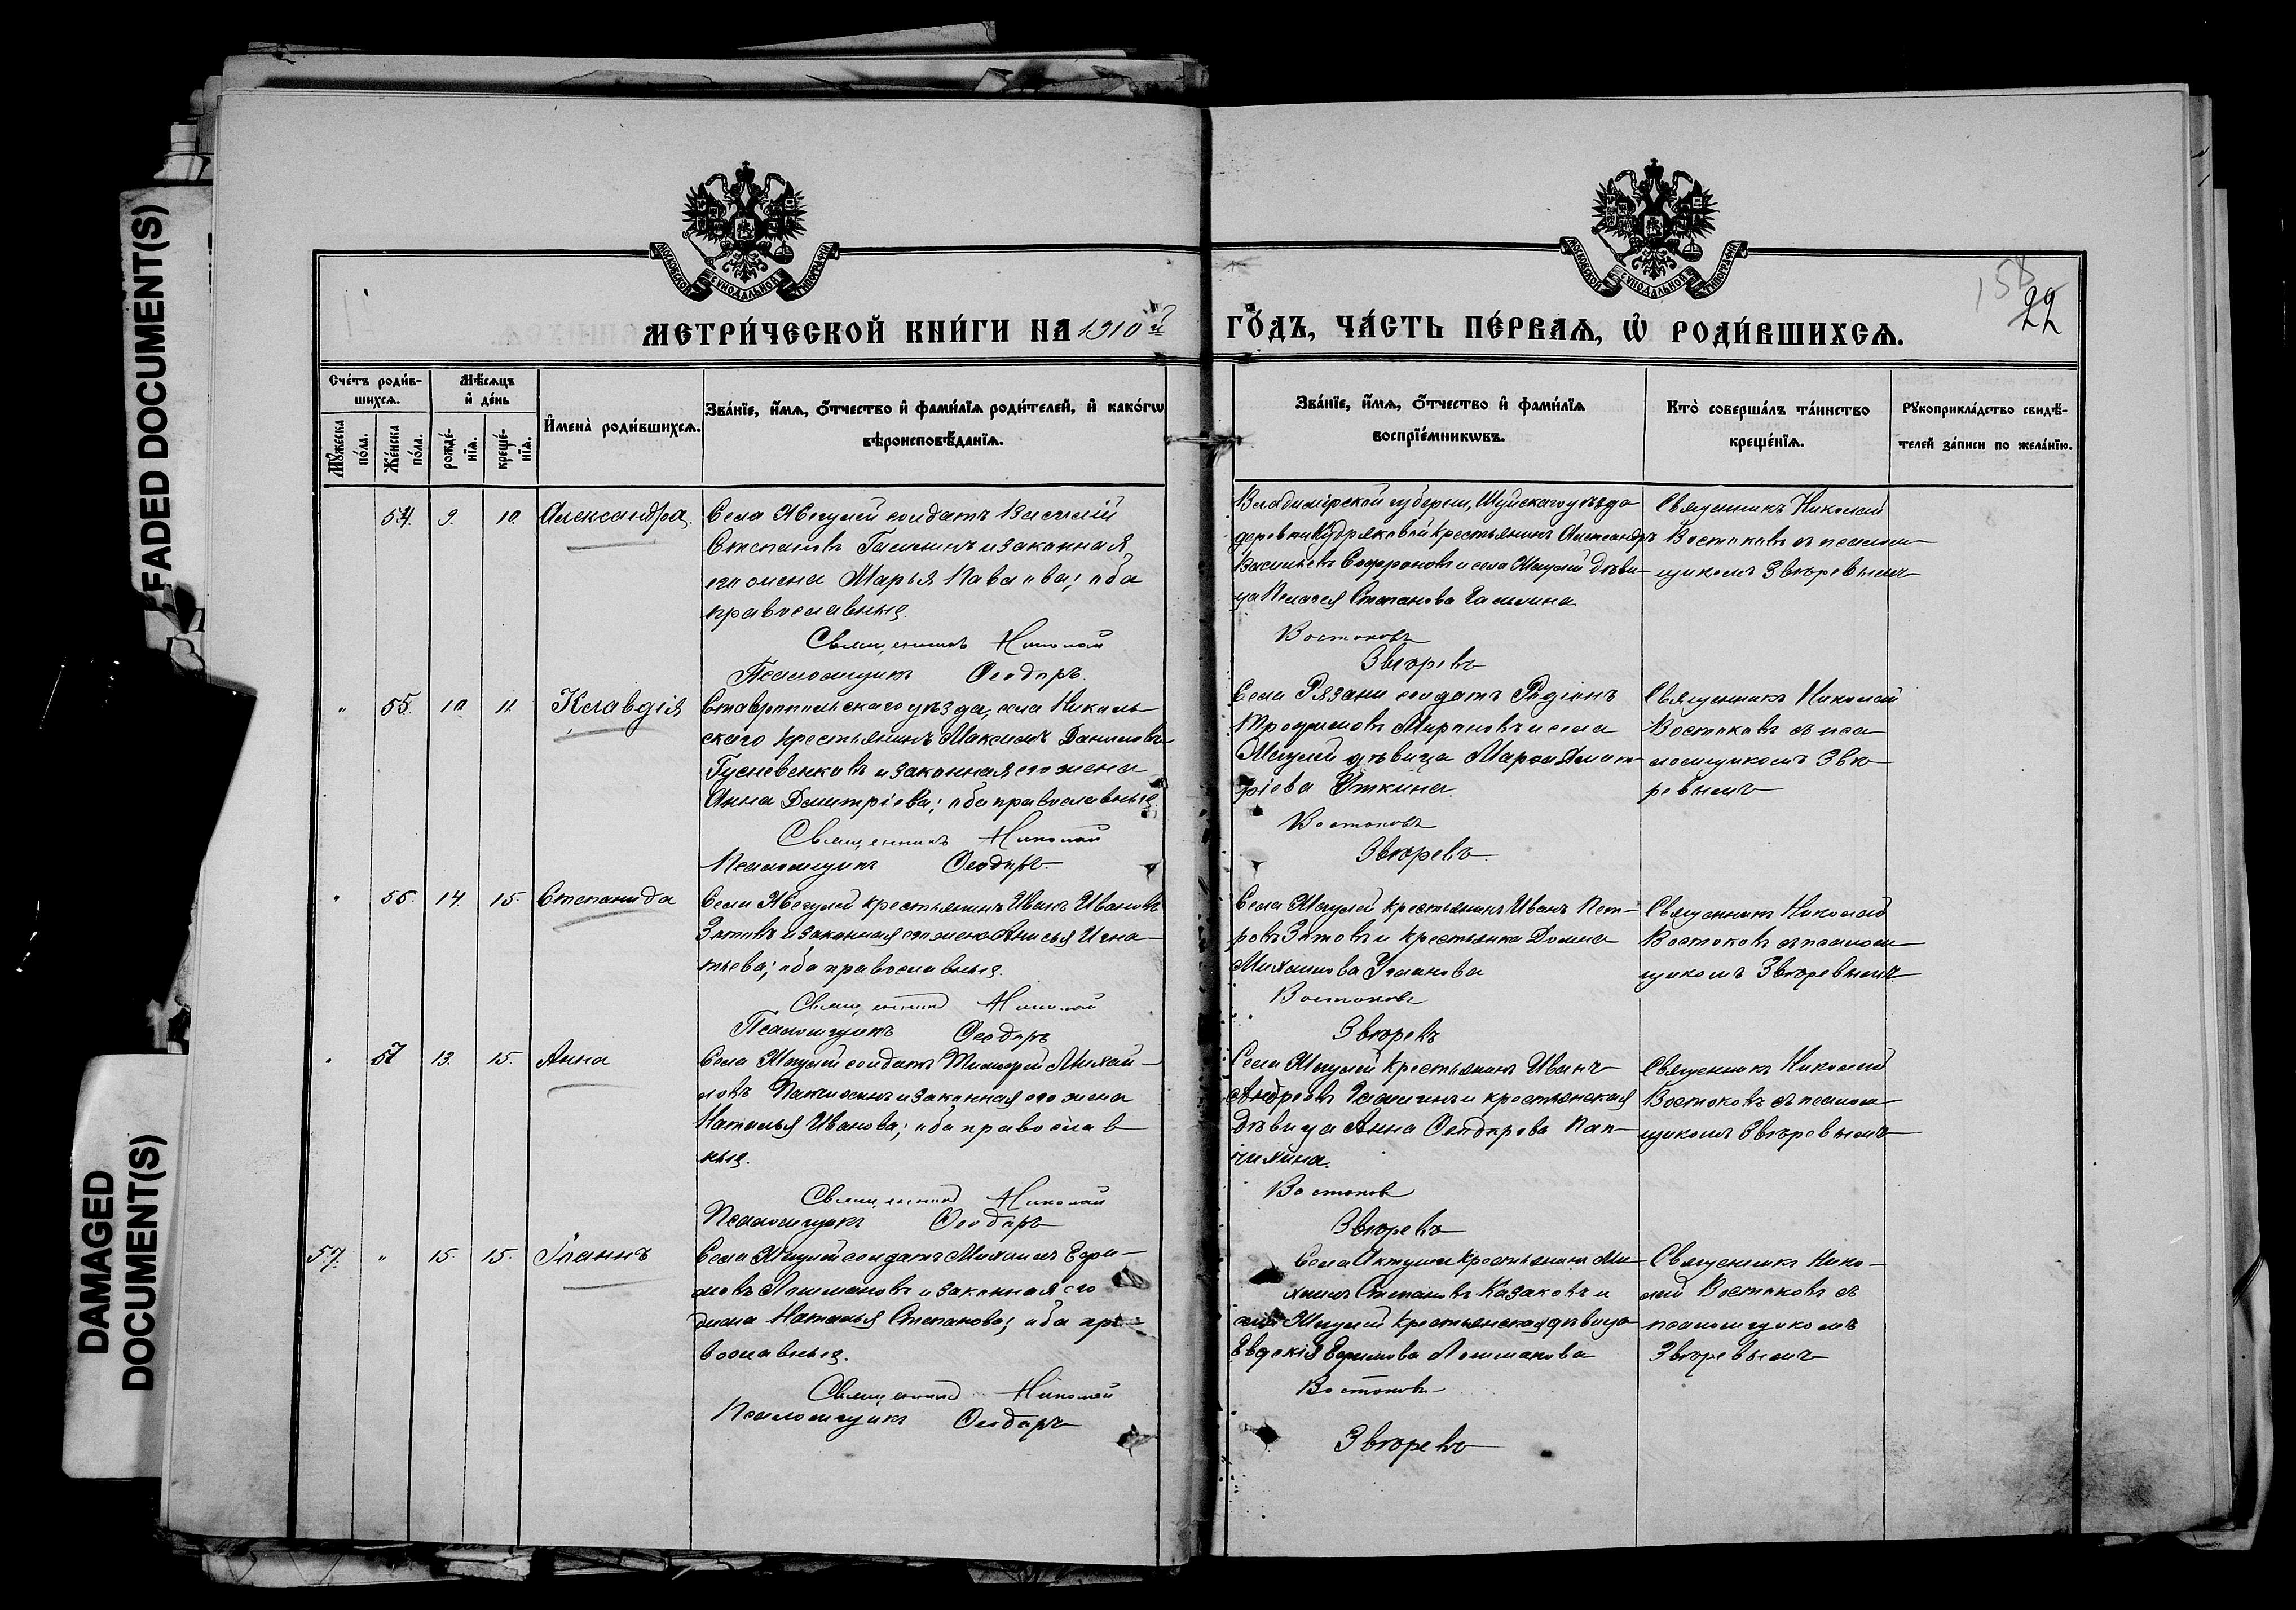 FADED DOCUMENT(S)
DAMAGED
DOCUMENT(S)
МОСКОВСКОЙ СѴНОДАЛЬНОЙ ТИПОГРАФІИ
МОСКОВСКОЙ СѴНОДАЛЬНОЙ ТИПОГРАФІИ
158
22
МЕТРИ́ЧЕСКОЙ КНИ́ГИ НА 1910й
ГО́ДЪ, ЧА́СТЬ ПЕ́РВАѦ, Ѡ҆ РОДИ́ВШИХСѦ.
Сче́тъ роди́в-
шихсѧ.
Мꙋ́жеска
по́ла.
Же́нска
по́ла.
Мѣ́сѧцъ
и҆ де́нь
рожде́-
нїѧ.
креще́-
нїѧ.
И҆мена̀ роди́вшихсѧ.
Зва́нїе, и҆́мѧ, ѻ҆́тчество и҆ фами́лїѧ роди́телей, и҆ како́гѡ
вѣроисповѣ́данїѧ.
Зва́нїе, и҆́мѧ, ѻ҆́тчество и҆ фами́лїѧ
воспрїе́мникѡвъ.
Кто̀ соверша́лъ та́инство
креще́нїѧ.
Рꙋкоприкла́дство свидѣ́-
телей за́писи по жела́нїю.
54. 9. 10. Александра
Села Жегулей солдатъ Василій
Степановъ Галкинъ и законная
его жена Марья Павлова; оба
православные.
Священникъ Николай
Псаломщикъ Ѳеодоръ.
Владимірской губерніи, Шуйскаго уѣзда
деревни Кудряковой крестьянинъ Александръ
Васильевъ Софроновъ и села Жегулей дѣви-
ца Пелагея Степанова Галкина
Востоковъ
Звѣревъ
Священникъ Николай
Востоковъ съ псалом-
щикомъ Звѣревымъ
" 55. 10 11. Клавдія
Ставропольскаго уѣзда, села Николь-
скаго крестьянинъ Максимъ Даниловъ
и законная его жена
Анна Димитріева; оба православные.
Священникъ Николай
Псаломщикъ Ѳеодоръ
Села Рязани солдатъ Родіонъ
Трофимовъ Мироновъ и села
Жегулей дѣвица Марѳа Димит-
ріева Уткина.
Востоковъ
Звѣревъ.
Священникъ Николай
Востоковъ съ пса
ломщикомъ Звѣ-
ревымъ
" 56. 14. 15. Степанида
Села Жегулей крестьянинъ Иванъ Ивановъ
Зотовъ и законная его жена Анисья Игна-
тьева; оба православные.
Священникъ Николай
Псаломщикъ Ѳеодоръ
Села Жегулей крестьянинъ Иванъ Пет-
ровъ Зотовъ и крестьянка Домна
Михаилова Уланова
Востоковъ
Звѣревъ
Священникъ Николай
Востоковъ съ псалом-
щикомъ Звѣревымъ
" 57 13. 15. Анна
Села Жегулей солдатъ Тимофей Михай-
ловъ и законная его жена
Наталья Иванова; оба православ
ные.
Священникъ Николай
Псаломщикъ Ѳеодоръ
Села Жегулей крестьянинъ Иванъ
Андреевъ Галкинъ и крестьянская
дѣвица Анна Ѳеодорова
Востоковъ
Звѣревъ
Священникъ Николай
Востоковъ съ псалом-
щикомъ Звѣревымъ
57. " 15. 15. Іоаннъ
Села Жегулей солдатъ Михаилъ Ефи-
мовъ Лошмановъ и законная его
жена Наталья Степанова; оба пра-
вославные.
Священникъ Николай
Псаломщикъ Ѳеодоръ
Села Актуши крестьянинъ Ми-
хаилъ Степановъ Казаковъ и
села Жегулей крестьянская дѣвица
Евдокія Ефимова Лошманова
Востоковъ
Звѣревъ
Священникъ Нико-
лай Востоковъ съ
псаломщикомъ
Звѣревымъ